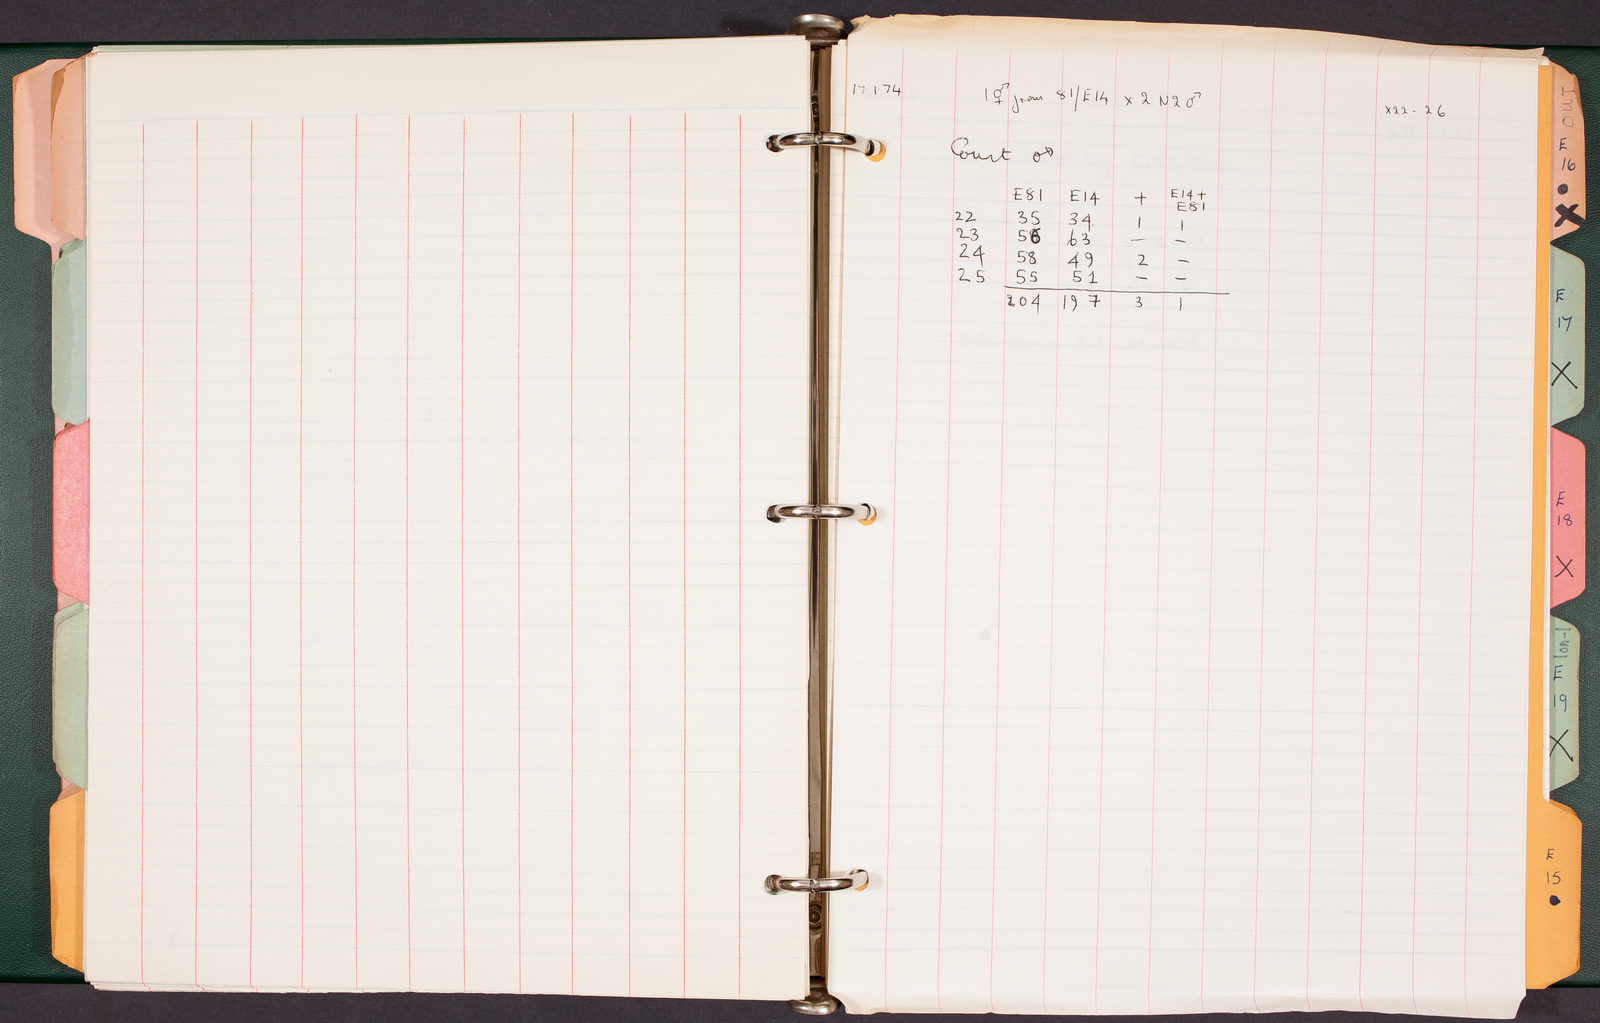 17.1.74
1⚥ from 81/E14 x 2 N2 ♂
x22 - 26
Count ♂
E81 E14 + E14+
E81
22 35 34 1 1
23 56 63 — —
24 58 49 2 —
25 55 51 — —
204 197 3 1
E
16
E
17
X
E
18
X
lon-1
E
19
X
E
15